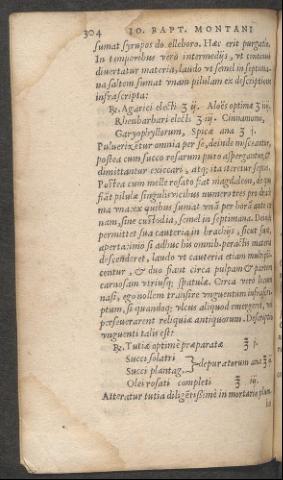 304 IO. BAPT. MONTANI
sumat syrupos do elleboro. Hæc erit purgatio.
In temporibus verò intermedijs, vt continuò
diuertatur materia, laudo vt semel in septima-
na saltem sumat vnam pilulam ex descriptione
infrascripta:
℞. Agarici electi ʒ ij. Aloës optimæ ʒ iij.
Rheubarbari electi ʒ iij. Cinnamomi,
Garyophyllorum, Spicæ ana ʒ j.
Puluerizẽtur omnia per se, deinde misceantur,
postea cum succo rosarum puto aspergantur, &
dimittantur exiccari, atq; ita iteretur sepius.
Postea cum melle rosato fiat magdaleon, de quo
fiãt pilulæ singulis vicibus numero tres pro drach
ma vna: ex quibus sumat vnã per horã ante cœ
nam, sine custodia, semel in septimana. Deinde
permittet sua cauteria in brachijs, sicut sunt,
aperta: imo si adhuc his omnib. peractis materia
descenderet, laudo vt cauteria etiam multipli-
centur, & duo fiant circa pulpam & partem
carnosam vtriusq; spatulæ. Circa verò locum
nasi, ego nollem transire vnguentum infrascri-
ptum, si quandoq; vlcus aliquod emergeret, vel
perseuerarent reliquiæ antiquorum. Descriptio
vnguenti talis est:
℞. Tutiæ optimè præparatæ ʒ j.
Succi solatri
Succi plantag. } depuratorum ana ʒ ij.
Olei rosati completi ʒ iij.
Atteratur tutia diligẽtissimè in mortario plum